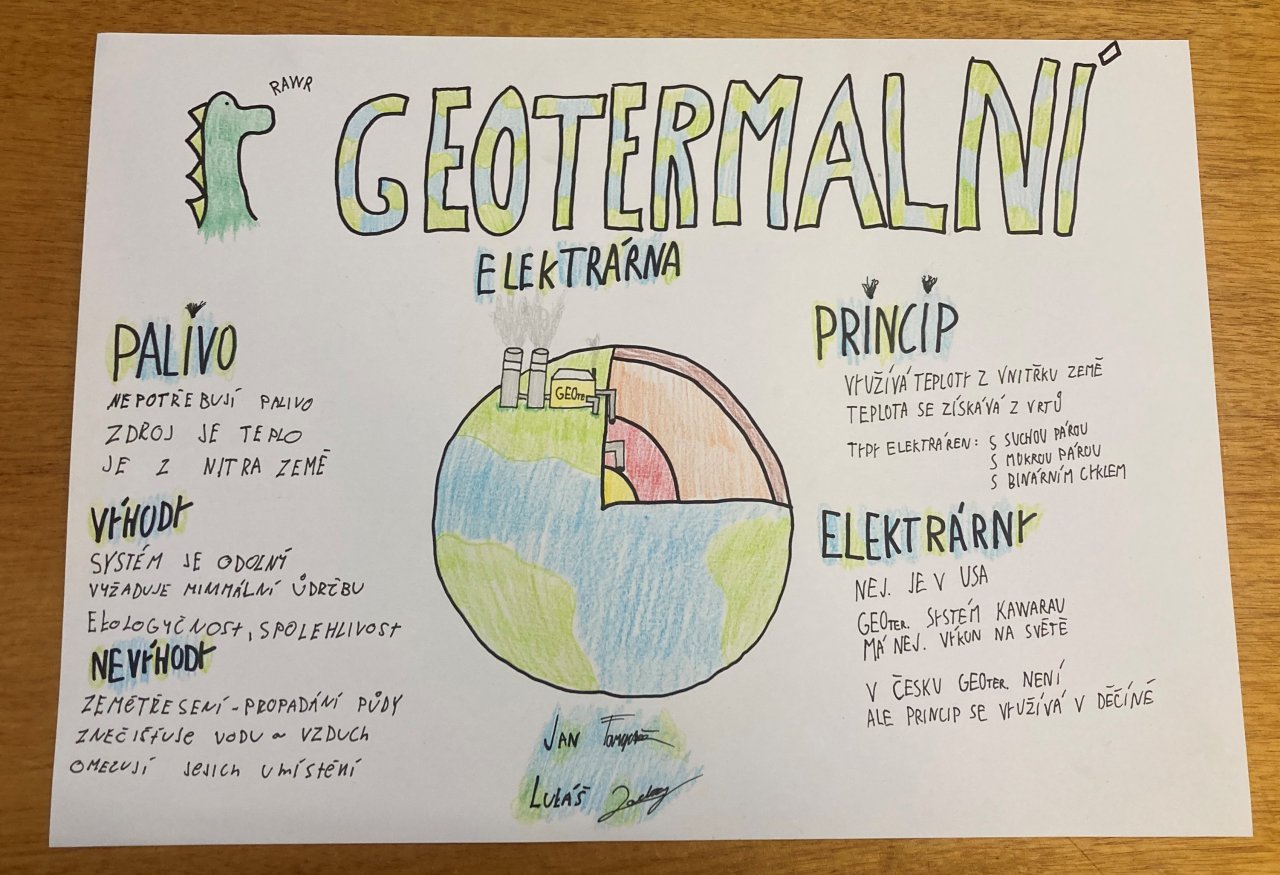 RAWR
GEOTERMALNÍ
ELEKTRÁRNA
PALIVO
NEPOTŘEBUJÍ PALIVO
ZDROJ JE TEPLO
JE Z NITRA ZEMĚ
VÝHODY
SYSTÉM JE ODOLNÝ
VYŽADUJE MINIMÁLNÍ ÚDRŽBU
EKOLOGYČNOST, SPOLEHLIVOST
NEVÝHODY
ZEMĚTŘESENÍ - PROPADÁNÍ PŮDY
ZNEČIŠŤUJE VODU a VZDUCH
OMEZUJÍ JEJICH UMÍSTĚNÍ
GEOTER.
PRINCIP
VYUŽÍVÁ TEPLOTY Z VNITŘKU ZEMĚ
TEPLOTA SE ZÍSKÁVÁ Z VRTŮ
TYPY ELEKTRÁREN: S SUCHOU PÁROU
S MOKROU PÁROU
S BINÁRNÍM CYKLEM
ELEKTRÁRNY
NEJ. JE V USA
GEOTER. SYSTÉM KAWARAU
MÁ NEJ. VÝKON NA SVĚTĚ
V ČESKU GEOTER. NENÍ
ALE PRINCIP SE VYUŽÍVÁ V DĚČÍNĚ
JAN
LUKÁŠ